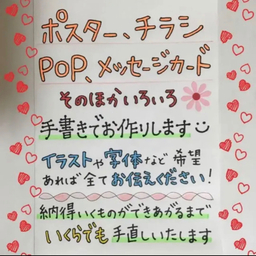 ポスター、チラシ
POP、メッセージカード
そのほかいろいろ
手書きでお作りします
イラストや字体など希望
あれば全てお伝えください!
納得いくものができあがるまで
いくらでも手直しいたします